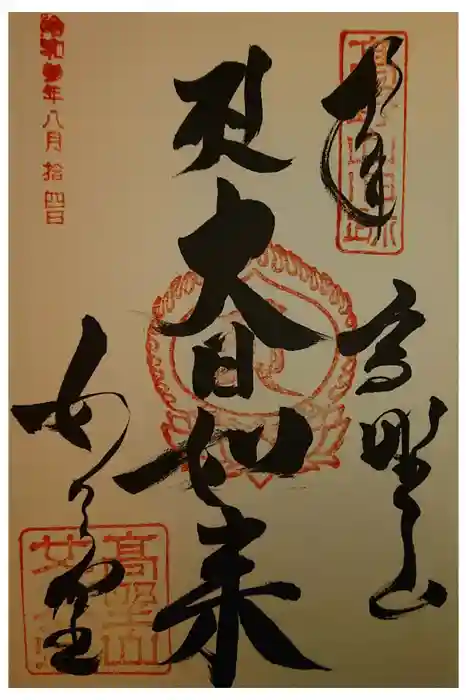 奉拝
高野山
大日如来
女人堂
令和参年八月拾四日
高野山
女人堂